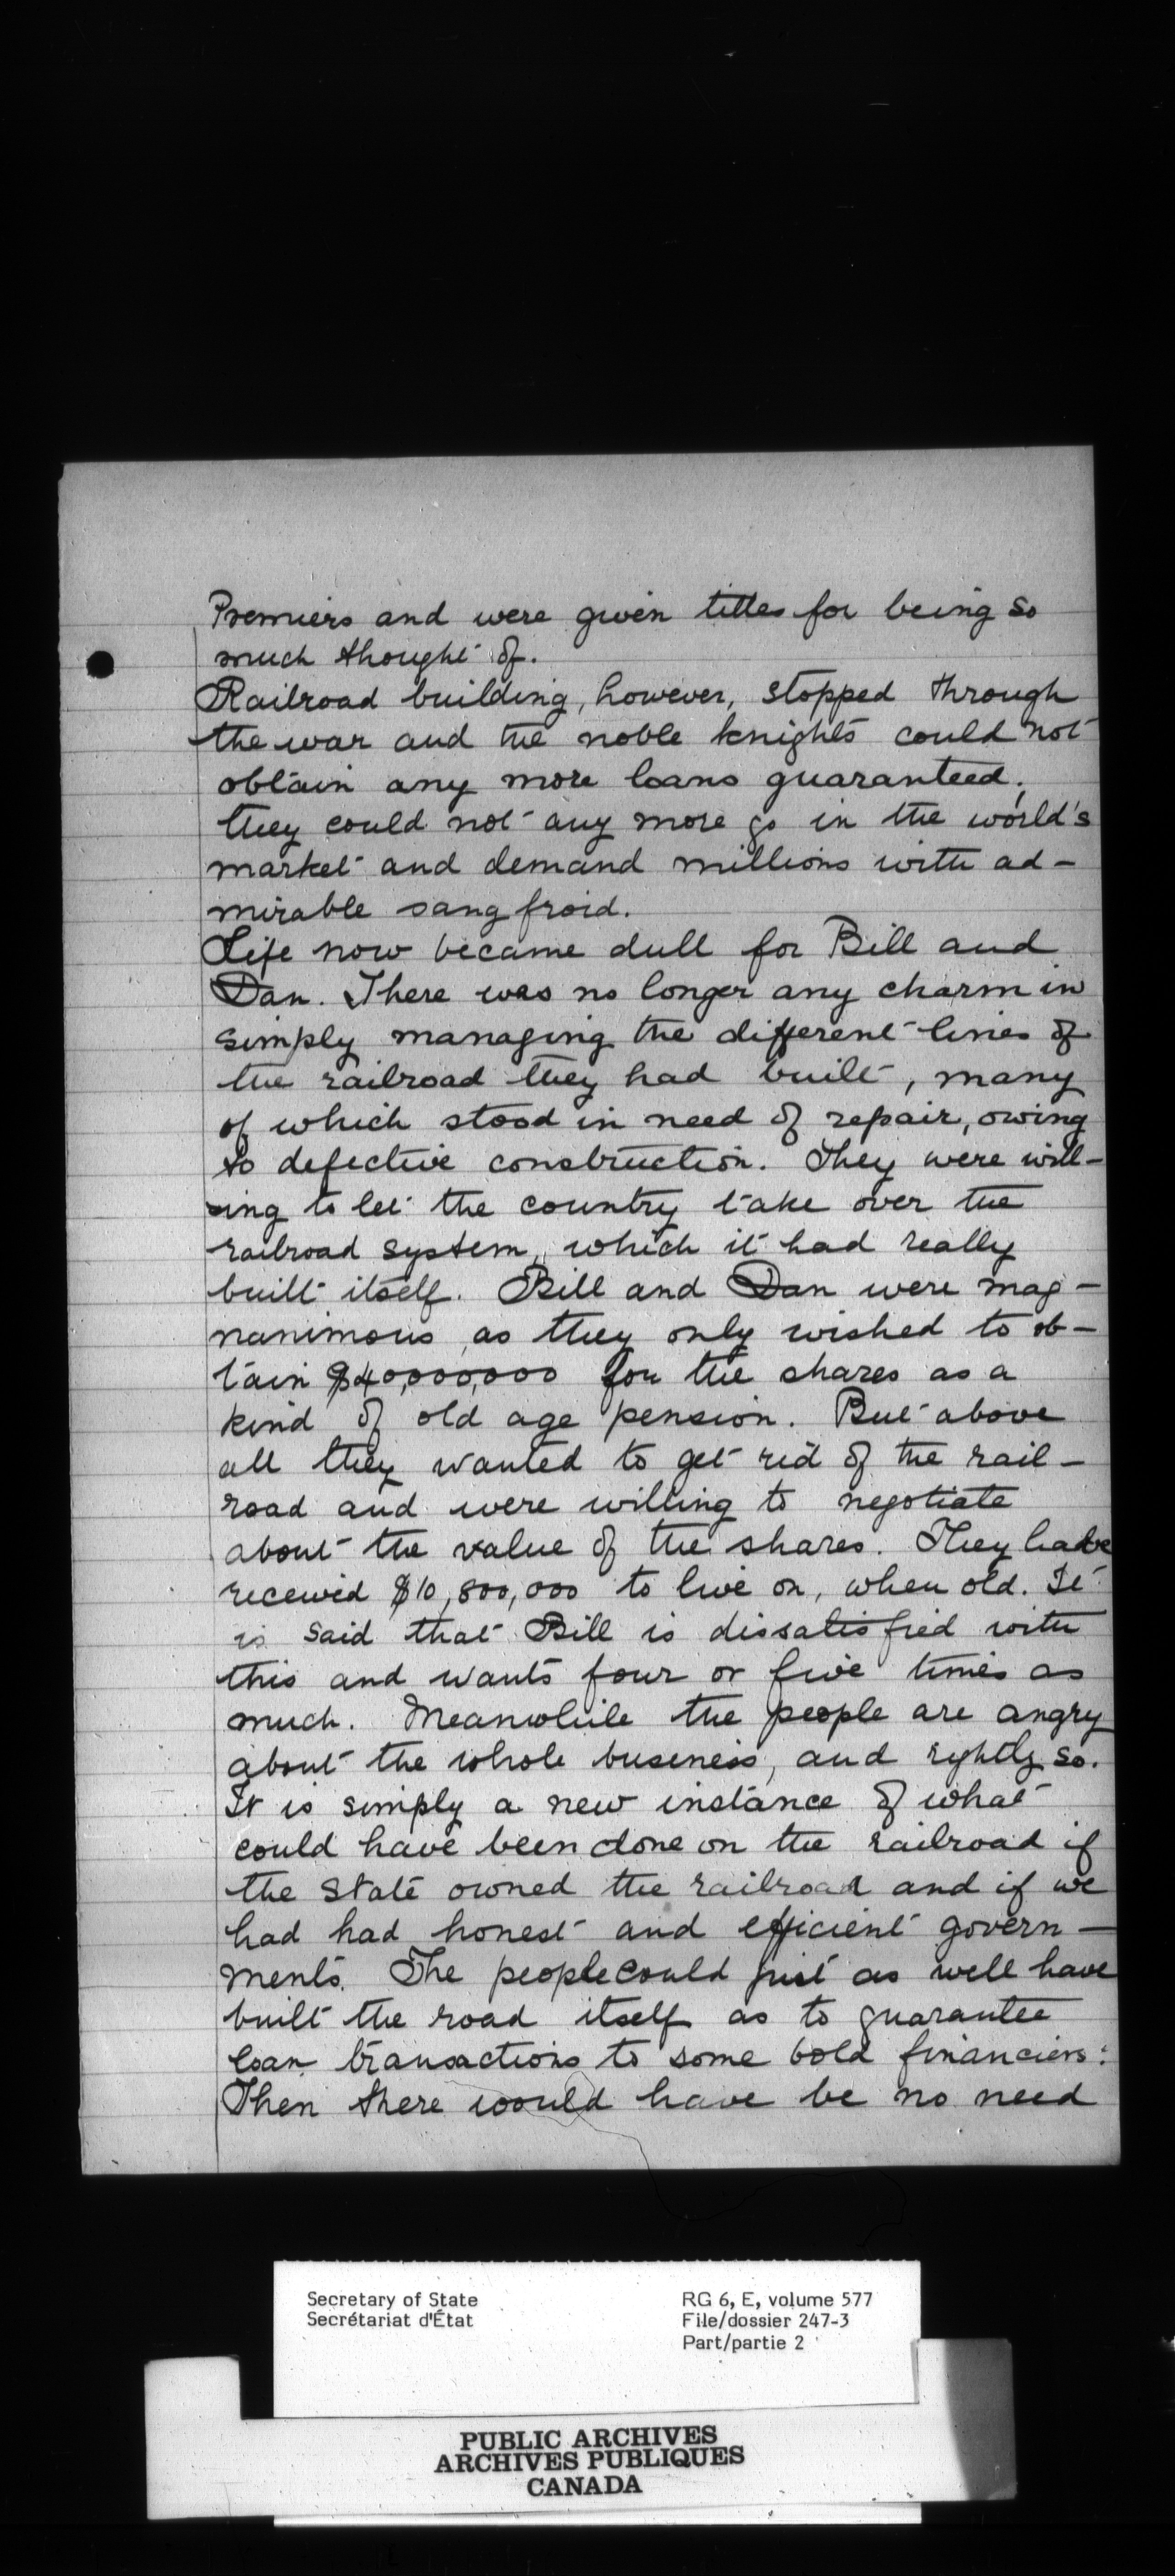 Premiers and were given titles for being so
much thought of.
Railroad building, however, stopped through
the war and the noble knights could not
obtain any more loans guaranteed;
they could not any more go in the world's
market and demand millions with ad-
mirable sang froid.
Life now became dull for Bill and
Dan. There was no longer any charm in
simply managing the different lines of
the railroad they had built, many
of which stood in need of repair, owing
to defective construction. They were will-
ing to let the country take over the
railroad system, which it had really
built itself. Bill and Dan were mag-
nanimous, as they only wished to ob-
tain $40,000,000 for the shares as a
kind of old age pension. But above
all they wanted to get rid of the rail-
road and were willing to negotiate
about the value of the shares. They have
received $10,800,000 to live on, when old. It
is said that Bill is dissatisfied with
this and wants four or five times as
much. Meanwhile the people are angry
about the whole business, and rightly so.
It is simply a new instance of what
could have been done on the railroad if
the State owned the railroad and if we
had had honest and efficient govern-
ments. The people could just as well have
built the road itself as to guarantee
loan transactions to some bold financiers.
Then there would have be no need
Secretary of State
Secrétariat d'État
RG 6, E, volume 577
File/dossier 247-3
Part/partie 2
PUBLIC ARCHIVES
ARCHIVES PUBLIQUES
CANADA